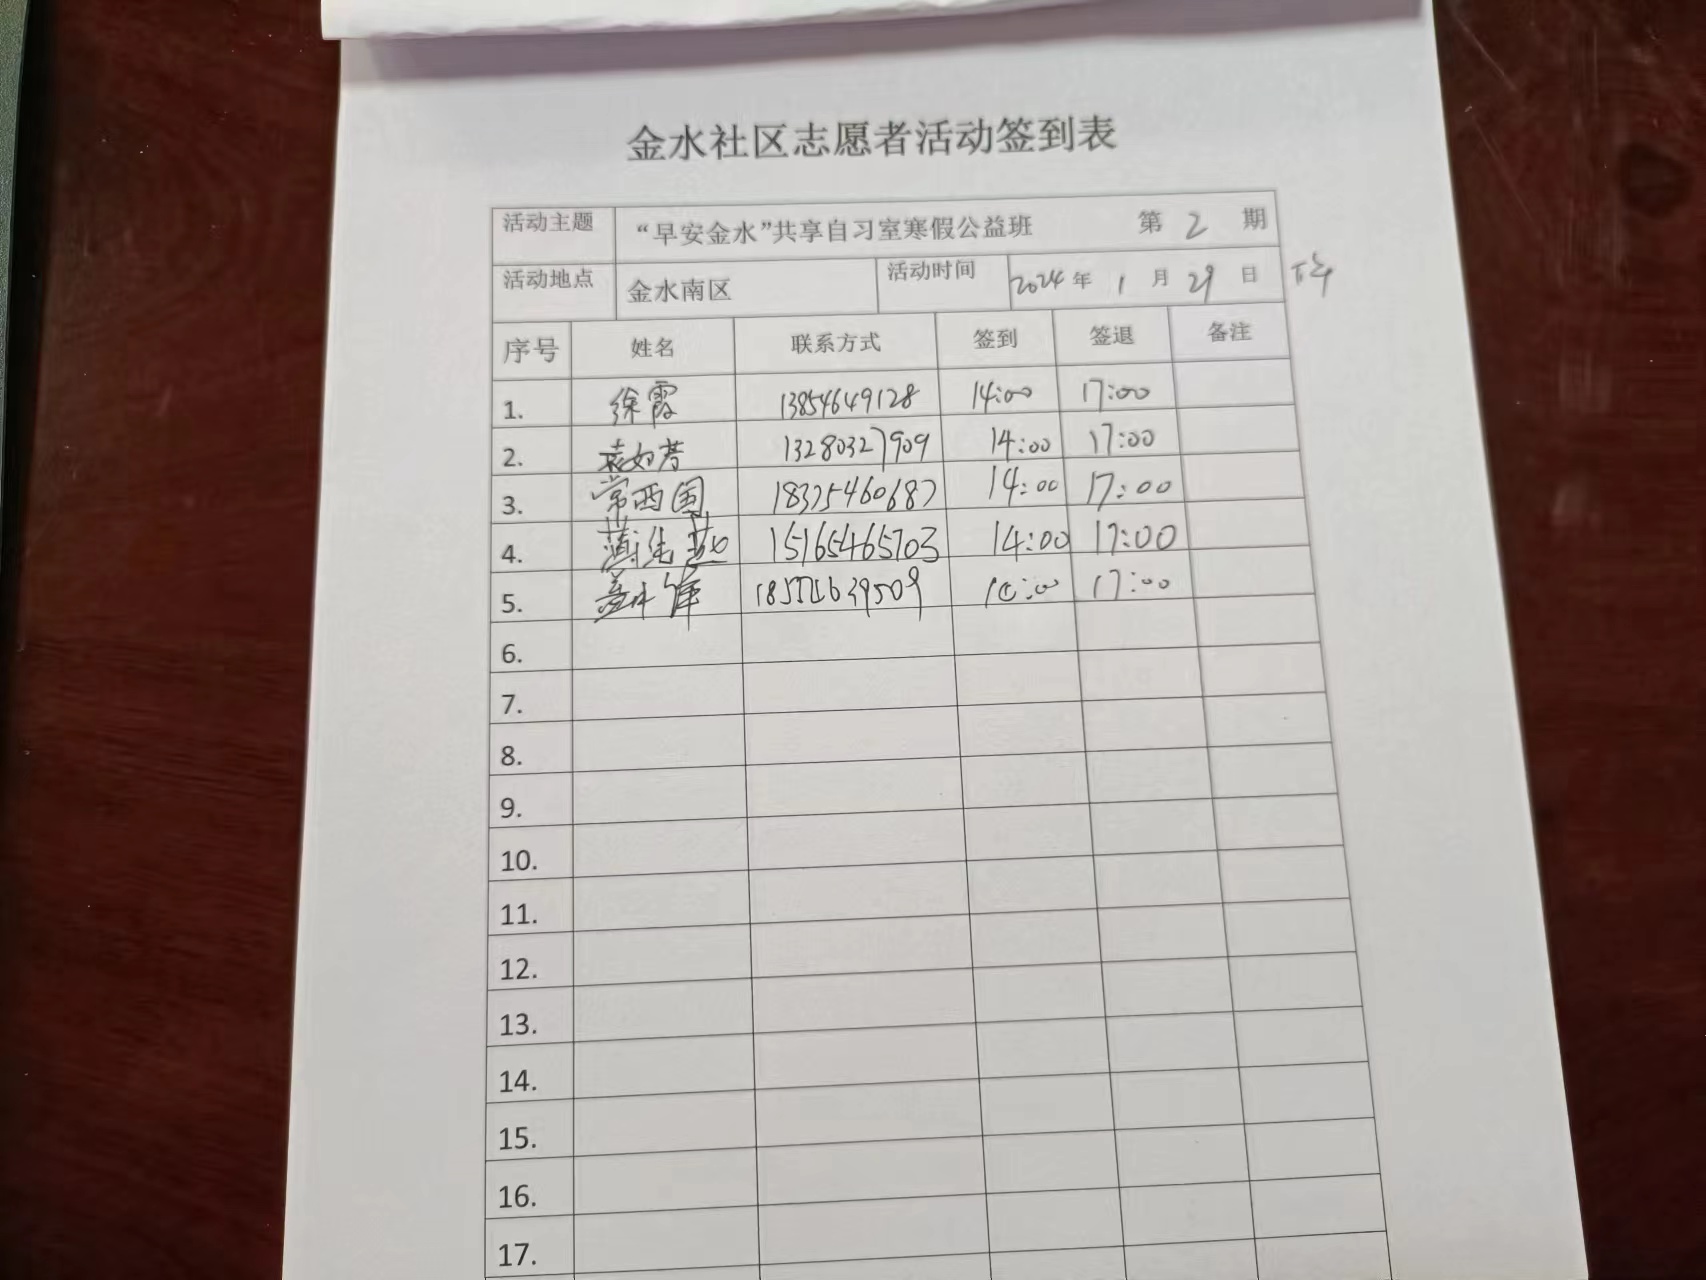 金水社区志愿者活动签到表
活动主题 “早安金水”共享自习室寒假公益班 第 2 期
活动地点 金水南区 活动时间 2024 年 1 月 29 日 下午
序号 姓名 联系方式 签到 签退 备注
1. 徐霞 13854649128 14:00 17:00
2. 袁如芳 13280327909 14:00 17:00
3. 常西国 18325460687 14:00 17:00
4. 15165465703 14:00 17:00
5. 17:00
6.
7.
8.
9.
10.
11.
12.
13.
14.
15.
16.
17.